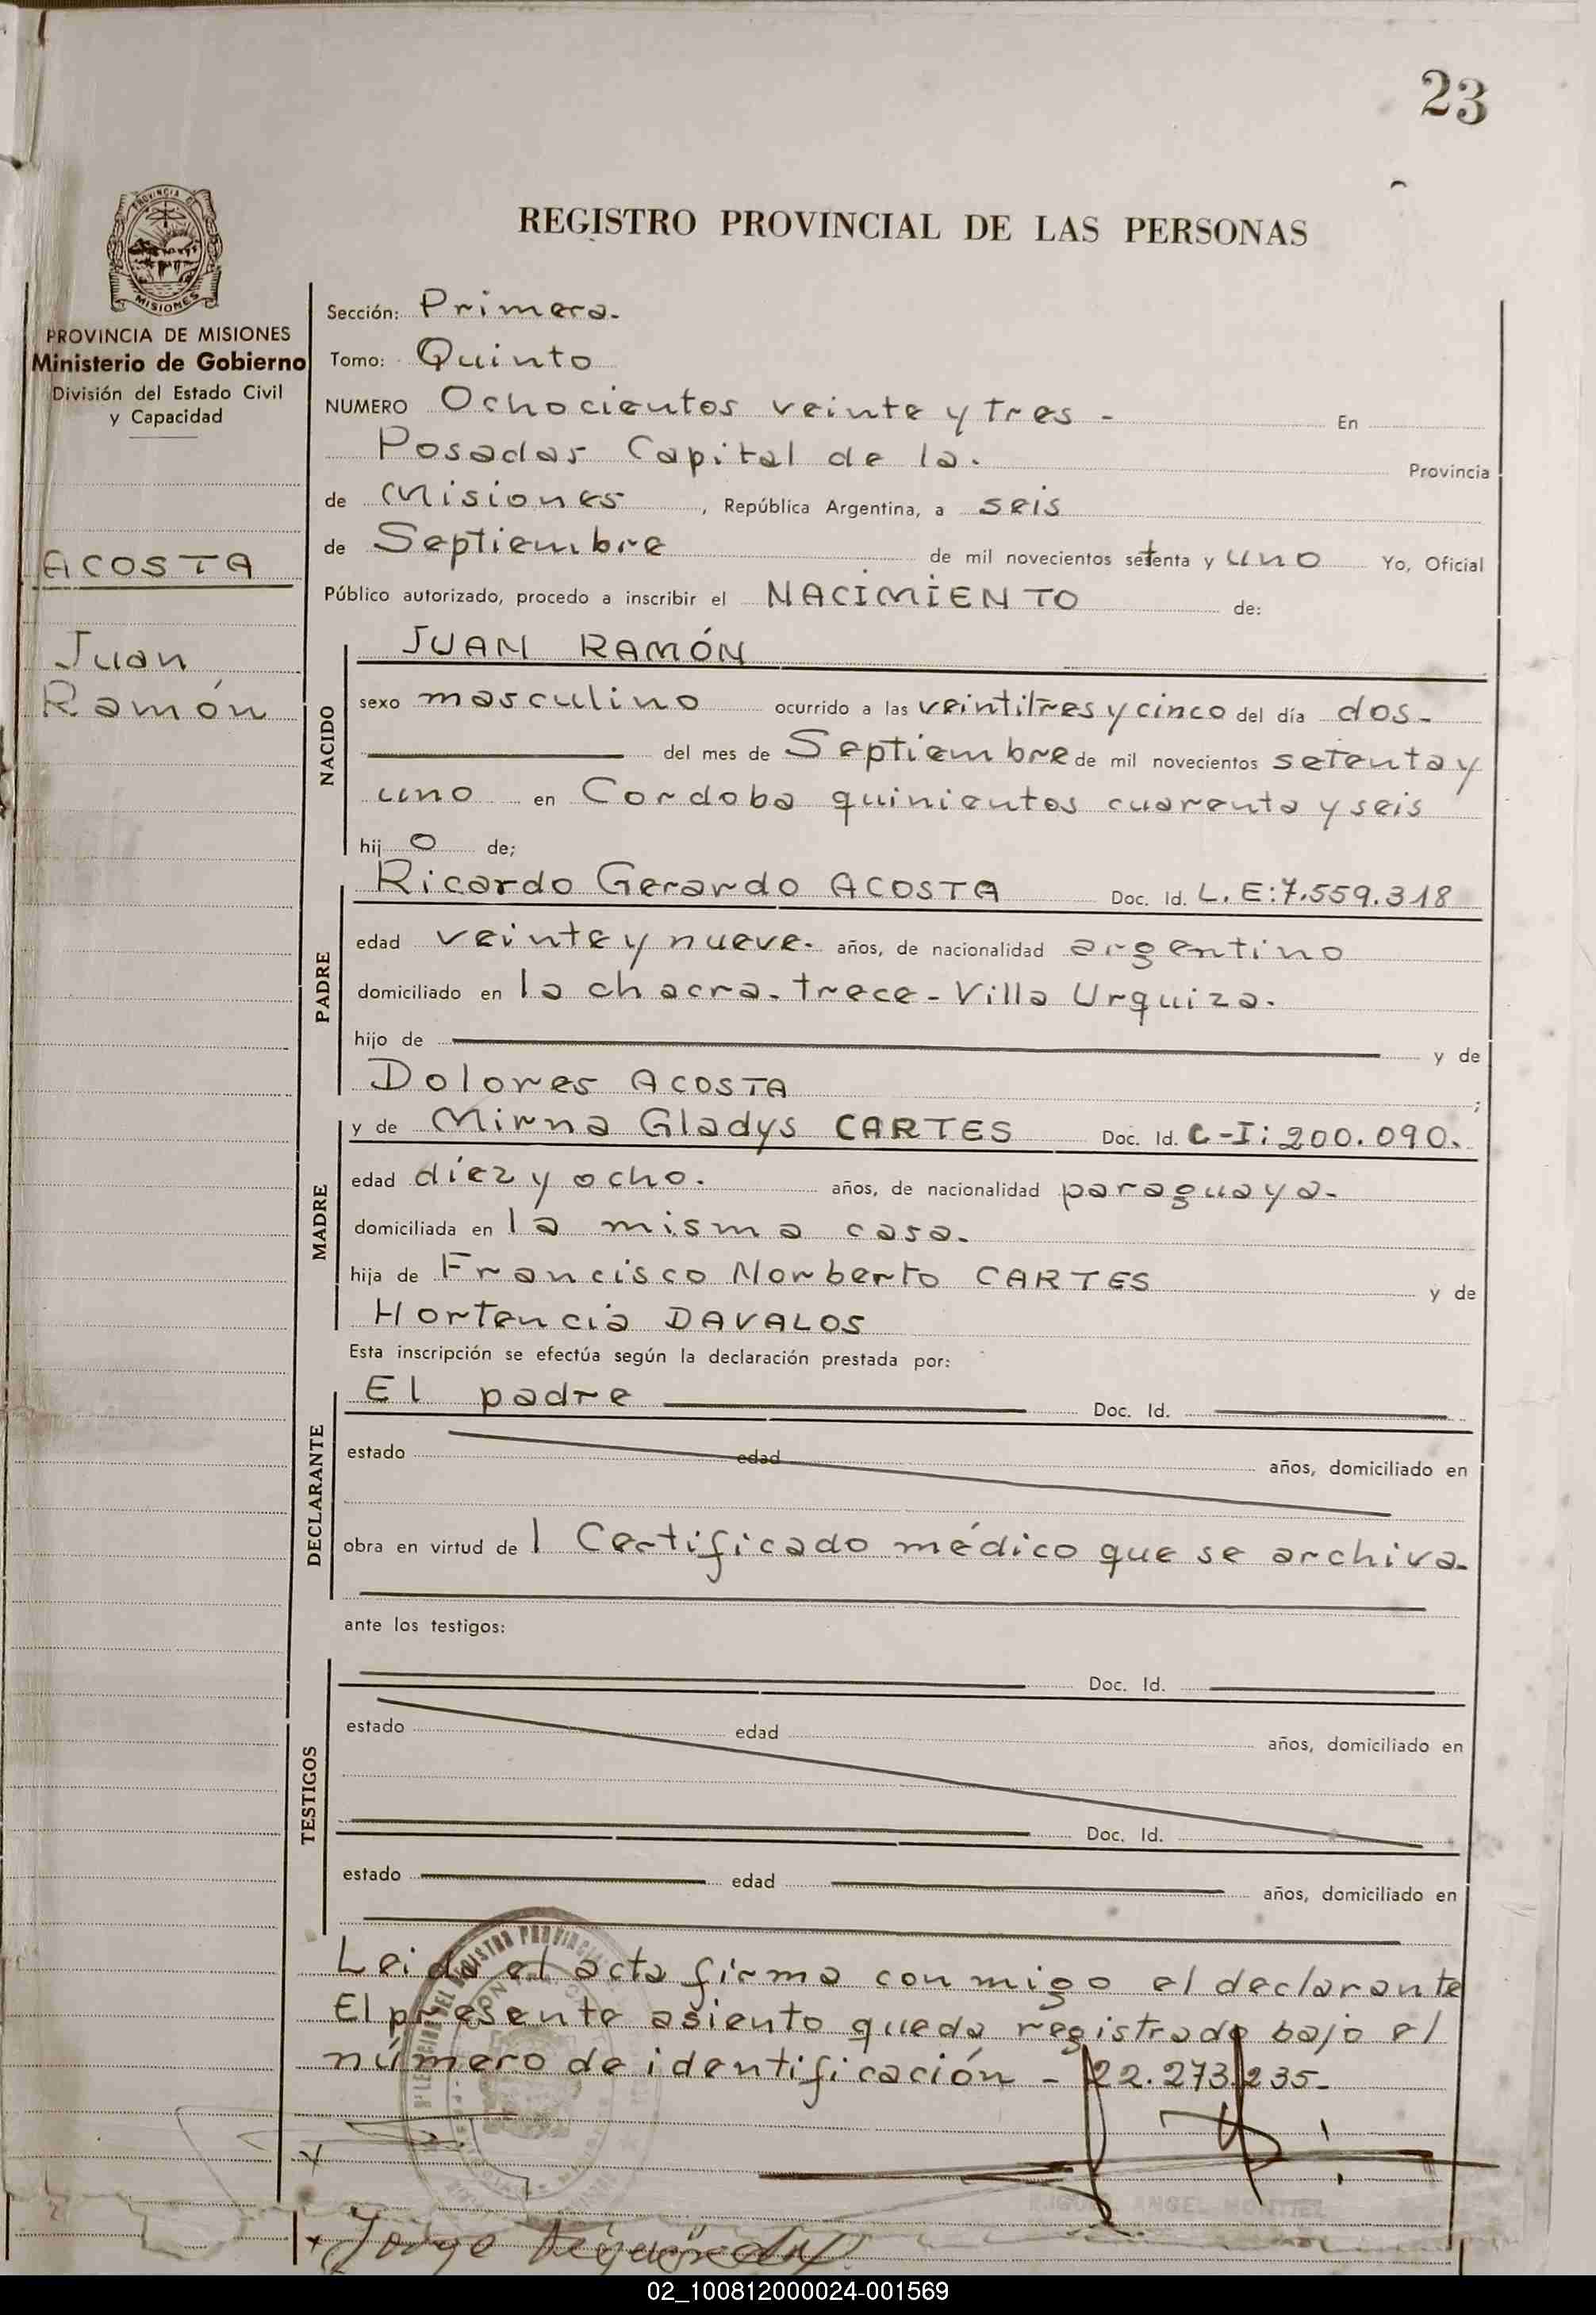 23
PROVINCIA DE
MISIONES
REGISTRO PROVINCIAL DE LAS PERSONAS
PROVINCIA DE MISIONES
Ministerio de Gobierno
División del Estado Civil
y Capacidad
ACOSTA
Juan
Ramón
Sección: Primera.
Tomo: Quinto
NUMERO Ochocientos veinte y tres - En
Posadas Capital de la. Provincia
de Misiones, República Argentina, a seis
de Septiembre de mil novecientos setenta y uno Yo, Oficial
Público autorizado, procedo a inscribir el NACIMIENTO de:
NACIDO
JUAN RAMÓN
sexo masculino ocurrido a las veintitres y cinco del día dos-
del mes de Septiembre de mil novecientos setenta y
uno en Cordoba quinientos cuarenta y seis
hij o de;
PADRE
Ricardo Gerardo ACOSTA Doc. Id. L.E: 7.559.318
edad veinte y nueve. años, de nacionalidad argentino
domiciliado en la chacra-trece-Villa Urquiza.
hijo de y de
Dolores ACOSTA ;
MADRE
y de Mirna Gladys CARTES Doc. Id. C-I: 200.090.
edad diez y ocho. años, de nacionalidad paraguaya-
domiciliada en la misma casa.
hija de Francisco Norberto CARTES y de
Hortencia DAVALOS
Esta inscripción se efectúa según la declaración prestada por:
DECLARANTE
El padre Doc. Id.
estado edad años, domiciliado en
obra en virtud de 1 Certificado médico que se archiva-
ante los testigos:
TESTIGOS
Doc. Id.
estado edad años, domiciliado en
Doc. Id.
estado edad años, domiciliado en
Leida el acta firma conmigo el declarante
El presente asiento queda registrado bajo el
número de identificación - 22.273.235-
MIGUEL ANGEL MONTIEL
Jorge
02_100812000024-001569